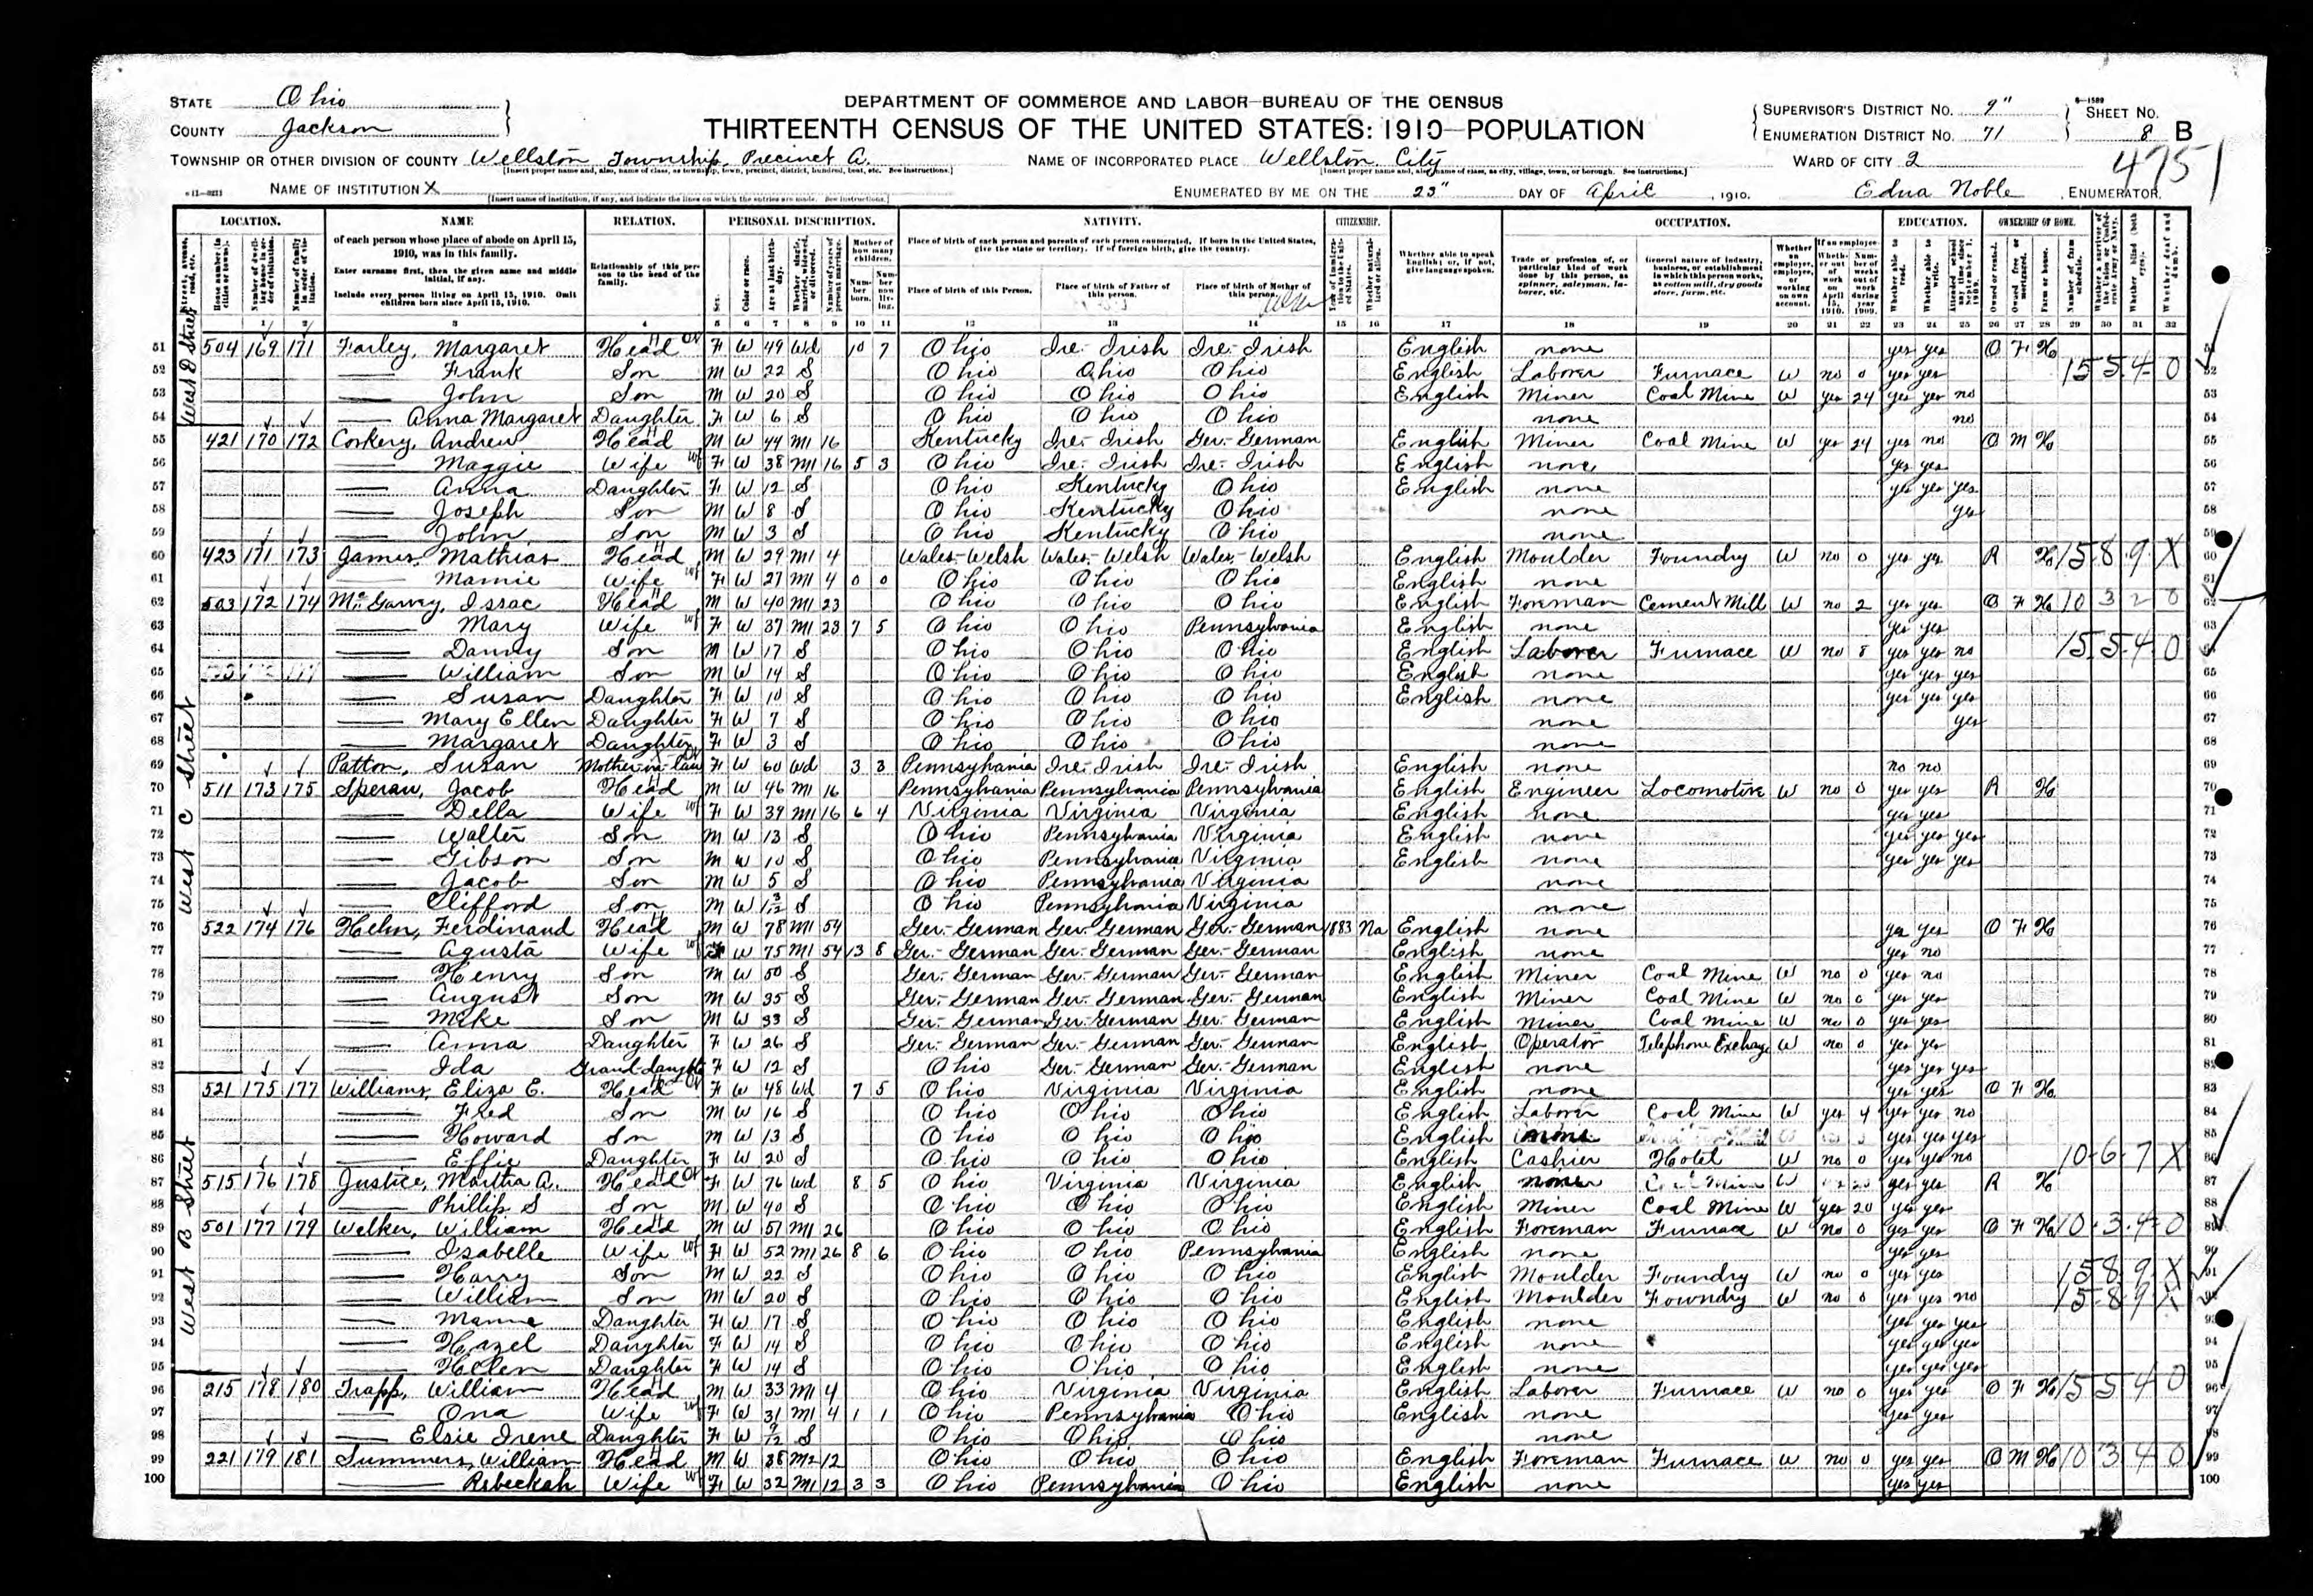 STATE Ohio
COUNTY Jackson
DEPARTMENT OF COMMERCE AND LABOR—BUREAU OF THE CENSUS
THIRTEENTH CENSUS OF THE UNITED STATES: 1910—POPULATION
SUPERVISOR'S DISTRICT No. 9"
ENUMERATION DISTRICT No. 71
SHEET No. 8 B
4751
TOWNSHIP OR OTHER DIVISION OF COUNTY Wellston Township, Precinct A.
NAME OF INCORPORATED PLACE Wellston City
WARD OF CITY 2
NAME OF INSTITUTION X
ENUMERATED BY ME ON THE 23" DAY OF April, 1910.
Edna Noble, ENUMERATOR.
LOCATION. NAME RELATION. PERSONAL DESCRIPTION. NATIVITY. CITIZENSHIP. OCCUPATION. EDUCATION. OWNERSHIP OF HOME.
of each person whose place of abode on April 15, 1910, was in this family.
Enter surname first, then the given name and middle initial, if any.
Include every person living on April 15, 1910. Omit children born since April 15, 1910.
Relationship of this person to the head of the family.
Place of birth of each person and parents of each person enumerated. If born in the United States, give the state or territory. If of foreign birth, give the country.
Place of birth of this Person. Place of birth of Father of this person. Place of birth of Mother of this person.
Whether able to speak English; or, if not, give language spoken.
Trade or profession of, or particular kind of work done by this person, as spinner, salesman, laborer, etc.
General nature of industry, business, or establishment in which this person works, as cotton mill, dry goods store, farm, etc.
West D Street
51 504 169 171 Farley, Margaret Head F W 49 Wd 10 7 Ohio Ire-Irish Ire-Irish English none yes yes O F Ho
52 Frank Son M W 22 S Ohio Ohio Ohio English Laborer Furnace W no 0 yes yes 15 5 4 0
53 John Son M W 20 S Ohio Ohio Ohio English Miner Coal Mine W yes 24 yes yes no
54 Anna Margaret Daughter F W 6 S Ohio Ohio Ohio none no
West C Street
55 421 170 172 Corkery, Andrew Head M W 44 M1 16 Kentucky Ire-Irish Ger-German English Miner Coal Mine W yes 24 yes no O M Ho
56 Maggie Wife F W 38 M1 16 5 3 Ohio Ire-Irish Ire-Irish English none yes yes
57 Anna Daughter F W 12 S Ohio Kentucky Ohio English none yes yes yes
58 Joseph Son M W 8 S Ohio Kentucky Ohio none yes
59 John Son M W 3 S Ohio Kentucky Ohio none
60 423 171 173 James, Mathias Head M W 29 M1 4 Wales-Welsh Wales-Welsh Wales-Welsh English Moulder Foundry W no 0 yes yes R Ho 15 8 9 X
61 Mamie Wife F W 27 M1 4 0 0 Ohio Ohio Ohio English none
62 503 172 174 McGarvey, Issac Head M W 40 M1 23 Ohio Ohio Ohio English Foreman Cement Mill W no 2 yes yes O F Ho 10 3 2 0
63 Mary Wife F W 37 M1 23 7 5 Ohio Ohio Pennsylvania English none yes yes
64 Danny Son M W 17 S Ohio Ohio Ohio English Laborer Furnace W no 8 yes yes no 15 5 4 0
65 William Son M W 14 S Ohio Ohio Ohio English none yes yes yes
66 Susan Daughter F W 10 S Ohio Ohio Ohio English none yes yes yes
67 Mary Ellen Daughter F W 7 S Ohio Ohio Ohio none yes
68 Margaret Daughter F W 3 S Ohio Ohio Ohio none
69 Patton, Susan Mother-in-law F W 60 Wd 3 3 Pennsylvania Ire-Irish Ire-Irish English none no no
70 511 173 175 Sperau, Jacob Head M W 46 M1 16 Pennsylvania Pennsylvania Pennsylvania English Engineer Locomotive W no 0 yes yes R Ho
71 Della Wife F W 39 M1 16 6 4 Virginia Virginia Virginia English none yes yes
72 Walter Son M W 13 S Ohio Pennsylvania Virginia English none yes yes yes
73 Gibson Son M W 10 S Ohio Pennsylvania Virginia English none yes yes yes
74 Jacob Son M W 5 S Ohio Pennsylvania Virginia none
75 Clifford Son M W 1 3/12 S Ohio Pennsylvania Virginia none
76 522 174 176 Hehn, Ferdinand Head M W 78 M1 54 Ger-German Ger-German Ger-German 1883 Na English none yes yes O F Ho
77 Agusta Wife F W 75 M1 54 13 8 Ger-German Ger-German Ger-German English none yes no
78 Henry Son M W 50 S Ger-German Ger-German Ger-German English Miner Coal Mine W no 0 yes no
79 August Son M W 35 S Ger-German Ger-German Ger-German English Miner Coal Mine W no 0 yes yes
80 Mike Son M W 33 S Ger-German Ger-German Ger-German English Miner Coal Mine W no 0 yes yes
81 Anna Daughter F W 26 S Ger-German Ger-German Ger-German English Operator Telephone Exchage W no 0 yes yes
82 Ida Grand-daughter F W 12 S Ohio Ger-German Ger-German English none yes yes yes
West B Street
83 521 175 177 Williams, Eliza E. Head F W 48 Wd 7 5 Ohio Virginia Virginia English none yes yes O F Ho
84 Fred Son M W 16 S Ohio Ohio Ohio English Laborer Coal Mine W yes 4 yes yes no
85 Howard Son M W 13 S Ohio Ohio Ohio English none yes yes yes
86 Effie Daughter F W 20 S Ohio Ohio Ohio English Cashier Hotel W no 0 yes yes no 10 6 7 X
87 515 176 178 Justice, Martha A. Head F W 76 Wd 8 5 Ohio Virginia Virginia English none Coal Mine W yes yes R Ho
88 Phillip S Son M W 40 S Ohio Ohio Ohio English Miner Coal Mine W yes 20 yes yes
89 501 177 179 Welker, William Head M W 51 M1 26 Ohio Ohio Ohio English Foreman Furnace W no 0 yes yes O F Ho 10 3 4 0
90 Isabelle Wife F W 52 M1 26 8 6 Ohio Ohio Pennsylvania English none yes yes
91 Harry Son M W 22 S Ohio Ohio Ohio English Moulder Foundry W no 0 yes yes 15 8 9 X
92 William Son M W 20 S Ohio Ohio Ohio English Moulder Fowndry W no 0 yes yes no 15 8 9 X
93 Mamie Daughter F W 17 S Ohio Ohio Ohio English none yes yes yes
94 Hazel Daughter F W 14 S Ohio Ohio Ohio English none yes yes yes
95 Helen Daughter F W 14 S Ohio Ohio Ohio English none yes yes yes
96 215 178 180 Trapp, William Head M W 33 M1 4 Ohio Virginia Virginia English Laborer Furnace W no 0 yes yes O F Ho 15 5 4 0
97 Ona Wife F W 31 M1 4 1 1 Ohio Pennsylvania Ohio English none yes yes
98 Elsie Irene Daughter F W 9/12 S Ohio Ohio Ohio none
99 221 179 181 Summers, William Head M W 38 M2 12 Ohio Ohio Ohio English Foreman Furnace W no 0 yes yes O M Ho 10 3 4 0
100 Rebeckah Wife F W 32 M1 12 3 3 Ohio Pennsylvania Ohio English none yes yes